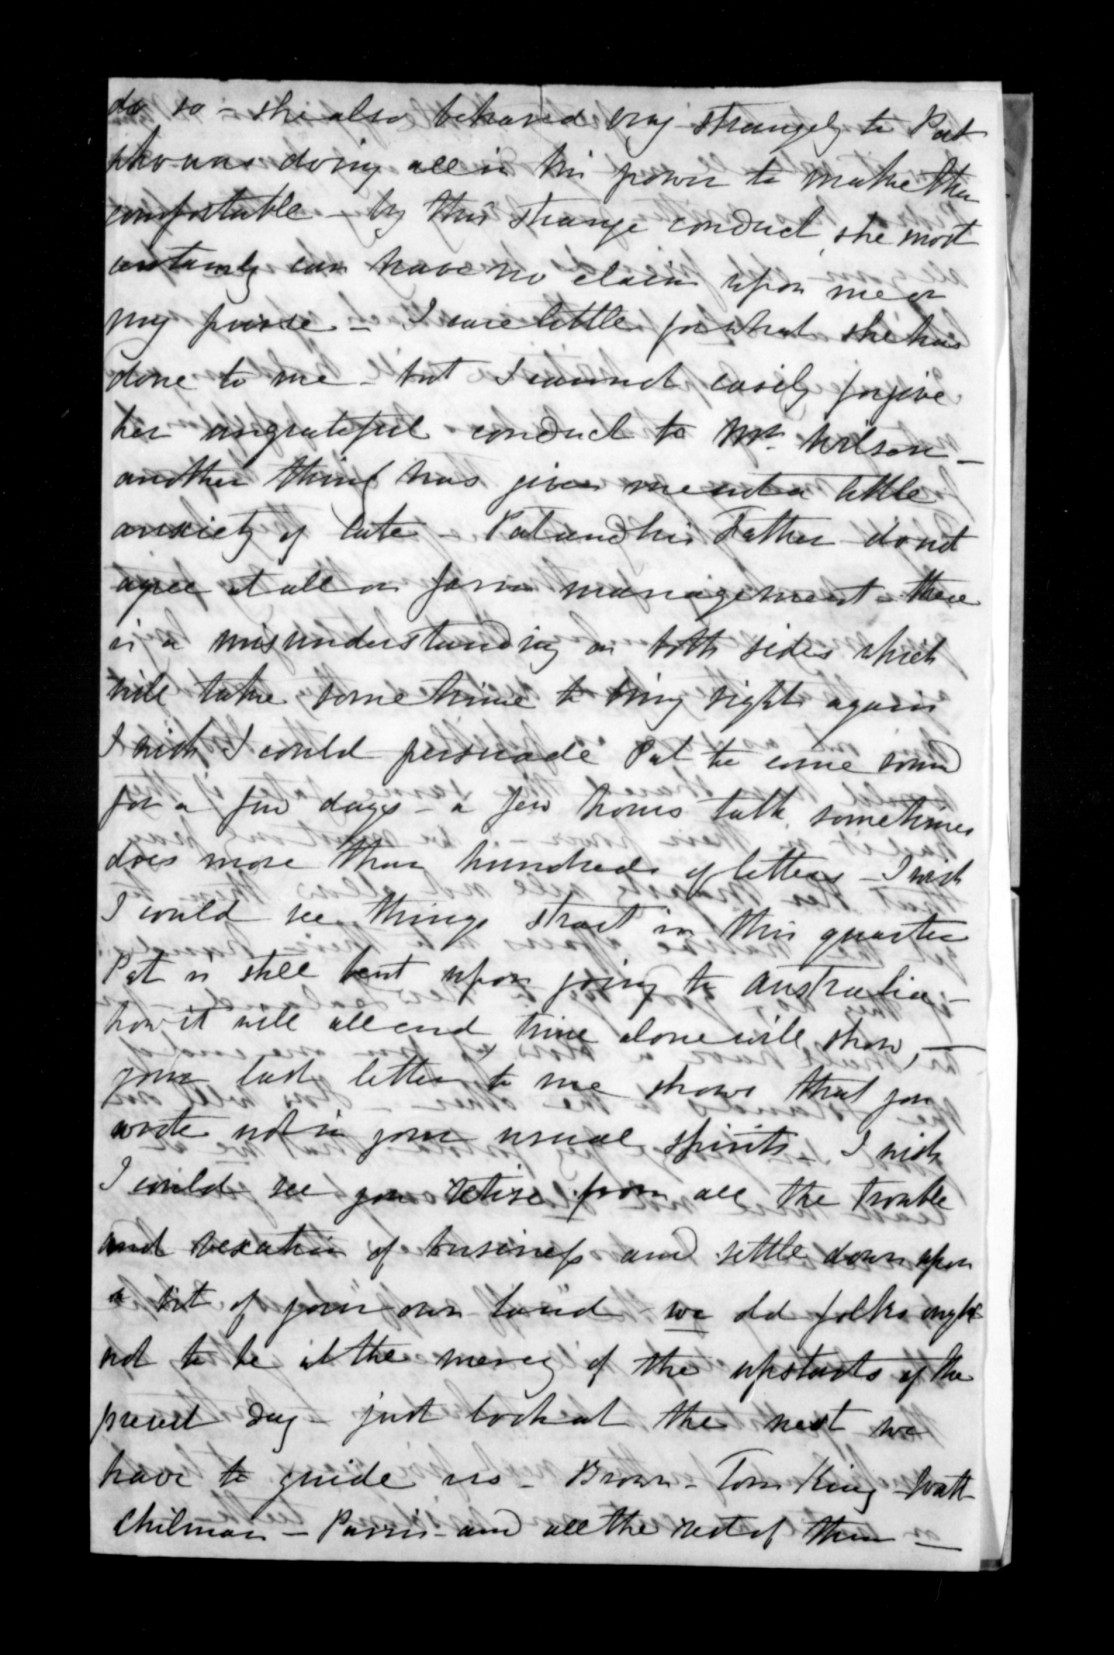 do so - she also behaved very strangely to Pat
who was doing all in his power to make them
comfortable - by this strange conduct she most
certainly can have no claim upon me or
my purse - I care little for what she has
done to me - but I cannot easily forgive
her ungrateful conduct to Mrs. Wilson -
another thing has given me not a little
anxiety of late - Pat and his Father dont
agree at all on farm management - there
is a misunderstanding on both sides which
will take some time to bring right again
I wish I could persuade Pat to come round
for a few days - a few hours talk sometimes
does more than hundreds of letters - I wish
I could see things strait in this quarter
Pat is still bent upon going to Australia -
how it will all end time alone will show, -
your last letter to me shows that you
wrote not in your usual spirits - I wish
I could see you retire from all the trouble
and vexation of business and settle down upon
a bit of your own land - we old folks ought
not to be at the mercy of the upstarts of the
present day - just look at the nest we
have to guide us - Brown - Tom King - Watt
Chilman - Parris - and all the rest of them -